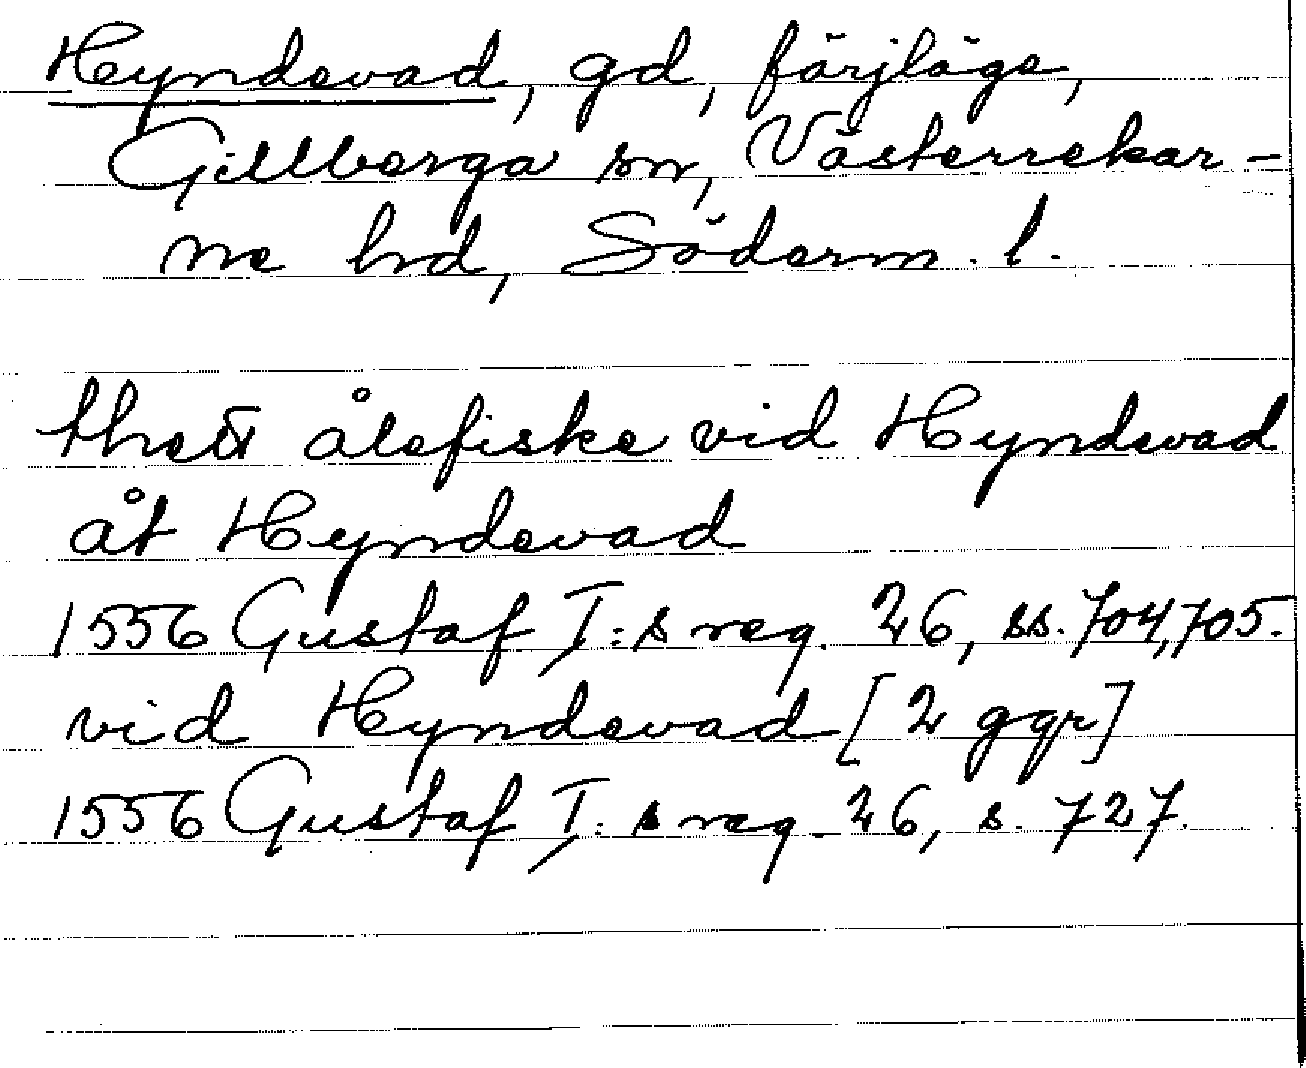 Hyndevad, gd, färjläge,
Gillberga sn, Västerrekar-
ne hd, Söderm. l.
thett ålefiske vid Hyndevad
åt Hyndevad
1556 Gustaf I:s reg. 26, ss. 704, 705.
vid Hyndevad [2 ggr]
1556 Gustaf I:s reg. 26, s. 727.